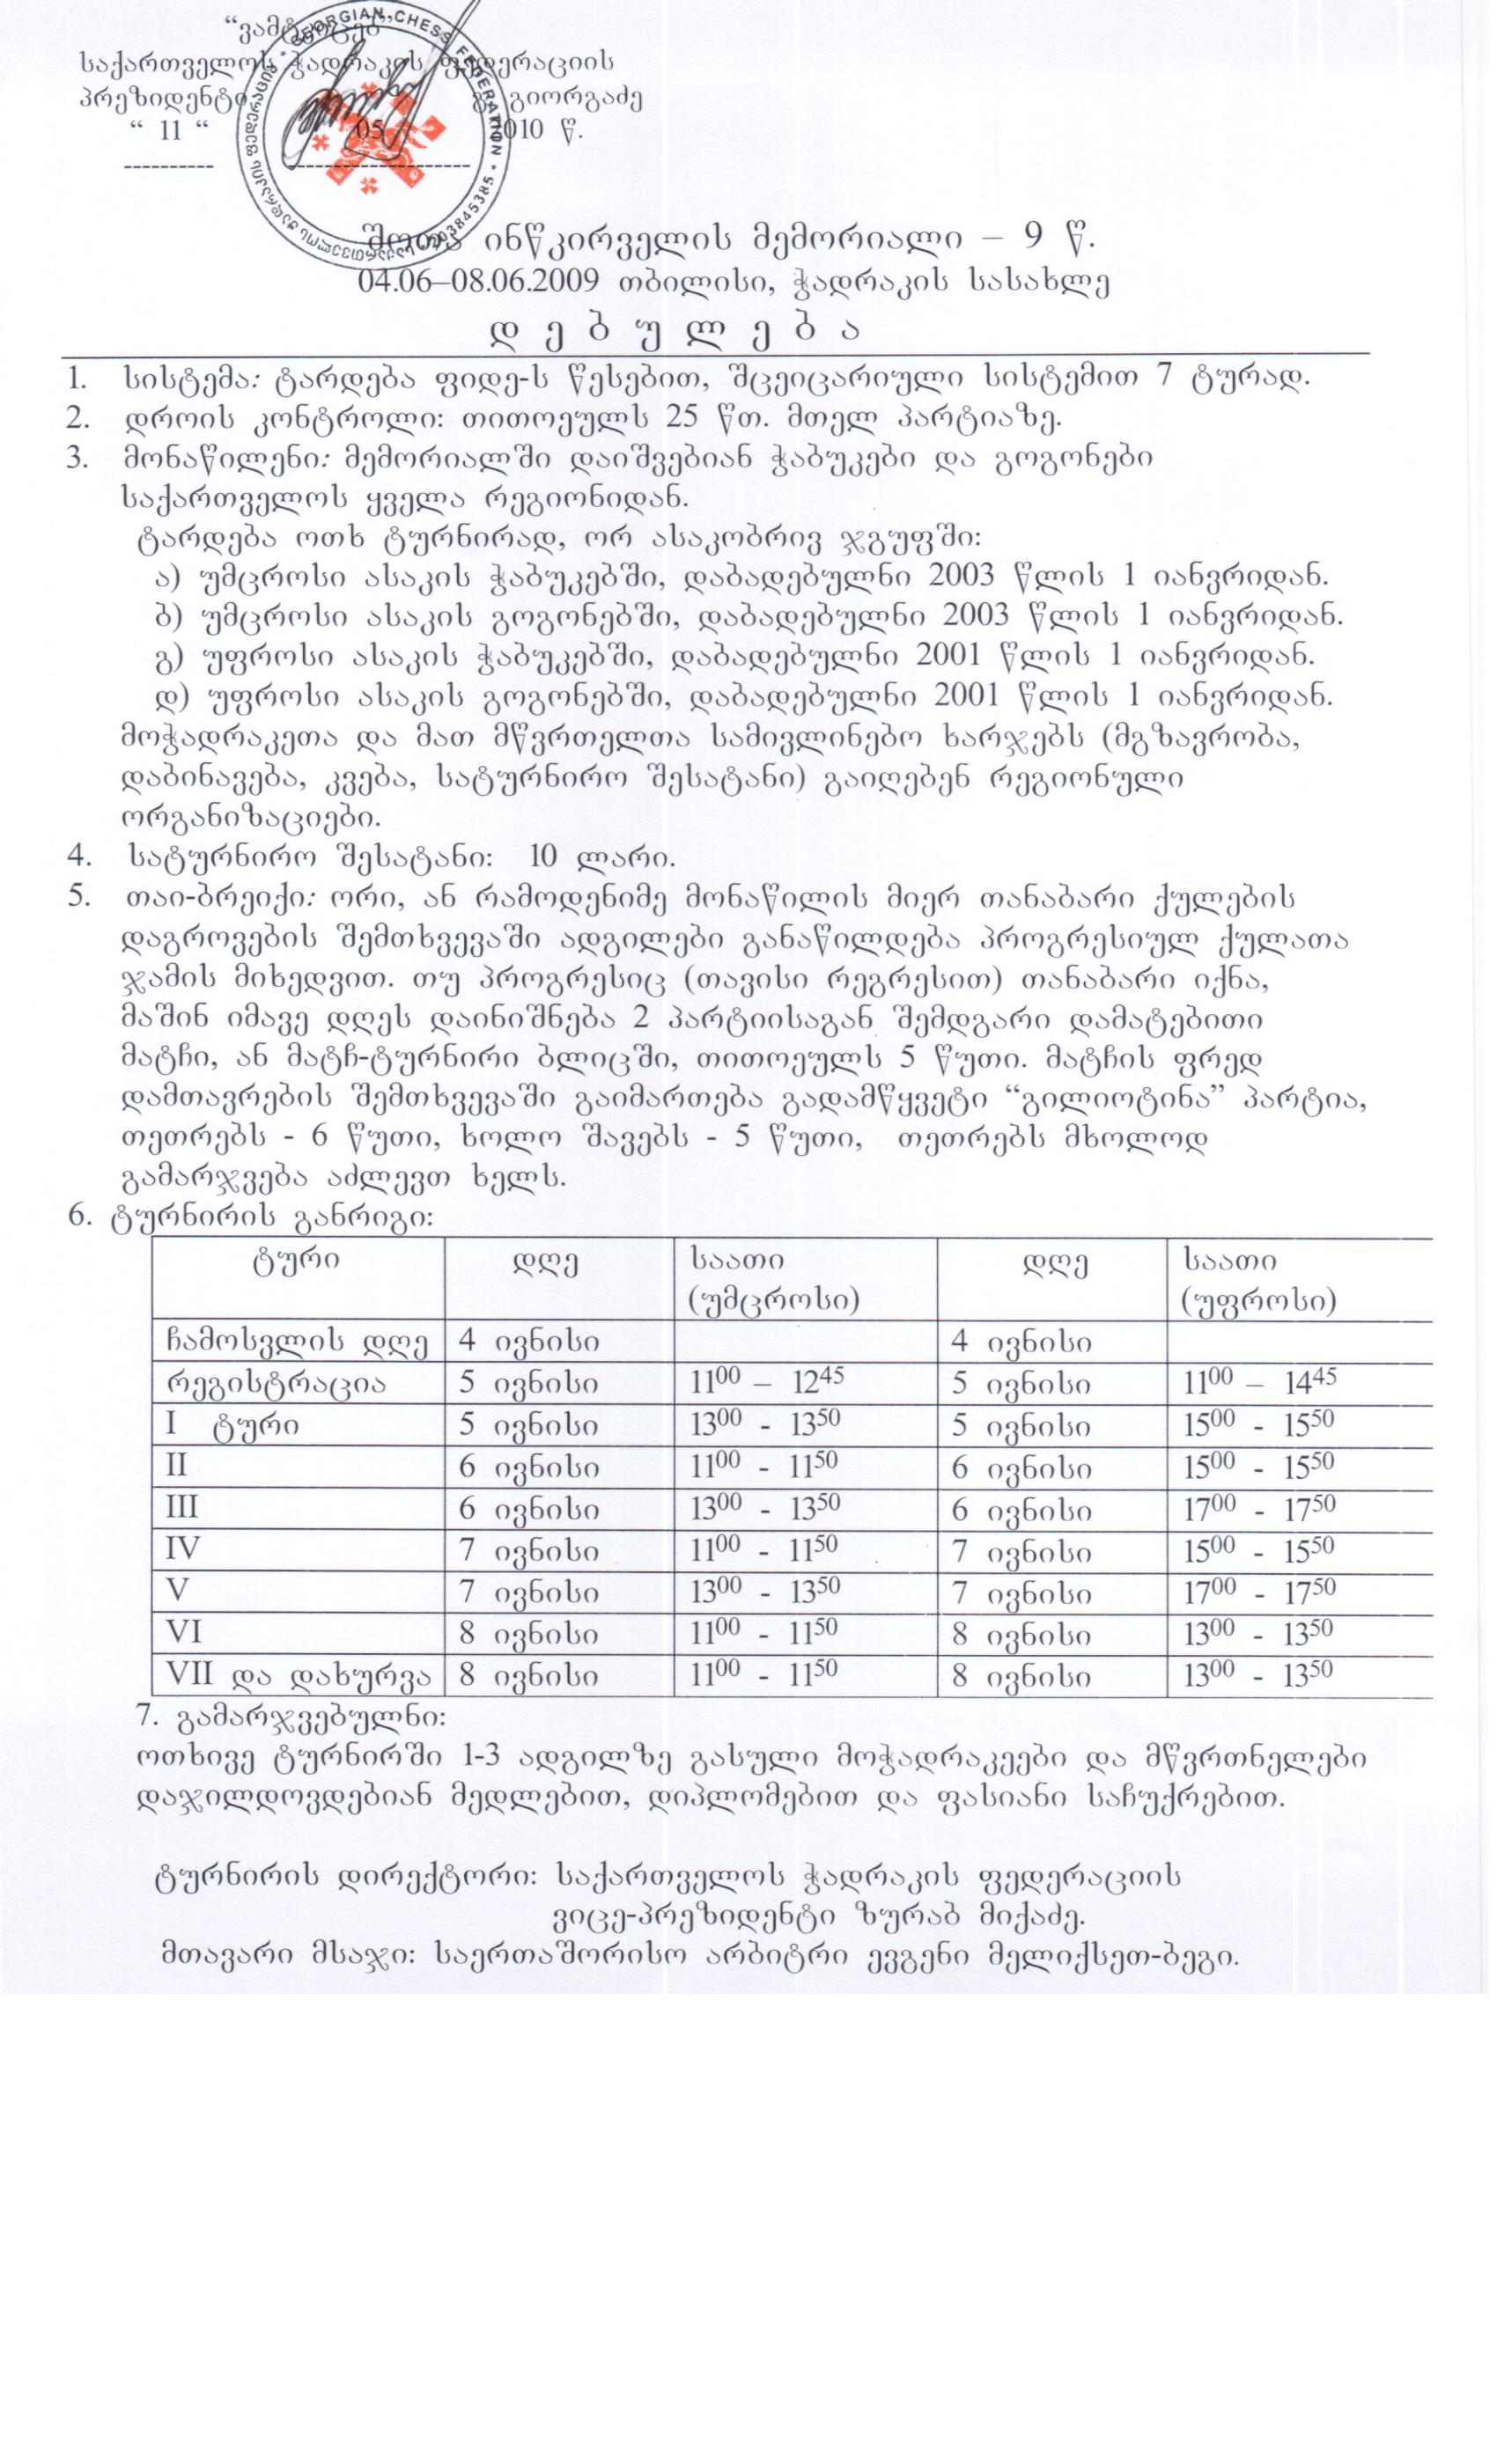 “ვამტკიცებ”
საქართველოს ჭადრაკის ფედერაციის
პრეზიდენტი გ. გიორგაძე
“ 11 “ 05 2010 წ.
GEORGIAN CHESS FEDERATION * 203845385 * საქართველოს ჭადრაკის ფედერაცია *
შოთა ინწკირველის მემორიალი – 9 წ.
04.06–08.06.2009 თბილისი, ჭადრაკის სასახლე
დ ე ბ უ ლ ე ბ ა
1. სისტემა: ტარდება ფიდე-ს წესებით, შცეიცარიული სისტემით 7 ტურად.
2. დროის კონტროლი: თითოეულს 25 წთ. მთელ პარტიაზე.
3. მონაწილენი: მემორიალში დაიშვებიან ჭაბუკები და გოგონები
საქართველოს ყველა რეგიონიდან.
ტარდება ოთხ ტურნირად, ორ ასაკობრივ ჯგუფში:
ა) უმცროსი ასაკის ჭაბუკებში, დაბადებულნი 2003 წლის 1 იანვრიდან.
ბ) უმცროსი ასაკის გოგონებში, დაბადებულნი 2003 წლის 1 იანვრიდან.
გ) უფროსი ასაკის ჭაბუკებში, დაბადებულნი 2001 წლის 1 იანვრიდან.
დ) უფროსი ასაკის გოგონებში, დაბადებულნი 2001 წლის 1 იანვრიდან.
მოჭადრაკეთა და მათ მწვრთელთა სამივლინებო ხარჯებს (მგზავრობა,
დაბინავება, კვება, სატურნირო შესატანი) გაიღებენ რეგიონული
ორგანიზაციები.
4. სატურნირო შესატანი: 10 ლარი.
5. თაი-ბრეიქი: ორი, ან რამოდენიმე მონაწილის მიერ თანაბარი ქულების
დაგროვების შემთხვევაში ადგილები განაწილდება პროგრესიულ ქულათა
ჯამის მიხედვით. თუ პროგრესიც (თავისი რეგრესით) თანაბარი იქნა,
მაშინ იმავე დღეს დაინიშნება 2 პარტიისაგან შემდგარი დამატებითი
მატჩი, ან მატჩ-ტურნირი ბლიცში, თითოეულს 5 წუთი. მატჩის ფრედ
დამთავრების შემთხვევაში გაიმართება გადამწყვეტი “გილიოტინა” პარტია,
თეთრებს - 6 წუთი, ხოლო შავებს - 5 წუთი, თეთრებს მხოლოდ
გამარჯვება აძლევთ ხელს.
6. ტურნირის განრიგი:
ტური დღე საათი (უმცროსი) დღე საათი (უფროსი)
ჩამოსვლის დღე 4 ივნისი 4 ივნისი
რეგისტრაცია 5 ივნისი 11⁰⁰ – 12⁴⁵ 5 ივნისი 11⁰⁰ – 14⁴⁵
I ტური 5 ივნისი 13⁰⁰ - 13⁵⁰ 5 ივნისი 15⁰⁰ - 15⁵⁰
II 6 ივნისი 11⁰⁰ - 11⁵⁰ 6 ივნისი 15⁰⁰ - 15⁵⁰
III 6 ივნისი 13⁰⁰ - 13⁵⁰ 6 ივნისი 17⁰⁰ - 17⁵⁰
IV 7 ივნისი 11⁰⁰ - 11⁵⁰ 7 ივნისი 15⁰⁰ - 15⁵⁰
V 7 ივნისი 13⁰⁰ - 13⁵⁰ 7 ივნისი 17⁰⁰ - 17⁵⁰
VI 8 ივნისი 11⁰⁰ - 11⁵⁰ 8 ივნისი 13⁰⁰ - 13⁵⁰
VII და დახურვა 8 ივნისი 11⁰⁰ - 11⁵⁰ 8 ივნისი 13⁰⁰ - 13⁵⁰
7. გამარჯვებულნი:
ოთხივე ტურნირში 1-3 ადგილზე გასული მოჭადრაკეები და მწვრთნელები
დაჯილდოვდებიან მედლებით, დიპლომებით და ფასიანი საჩუქრებით.
ტურნირის დირექტორი: საქართველოს ჭადრაკის ფედერაციის
ვიცე-პრეზიდენტი ზურაბ მიქაძე.
მთავარი მსაჯი: საერთაშორისო არბიტრი ევგენი მელიქსეთ-ბეგი.